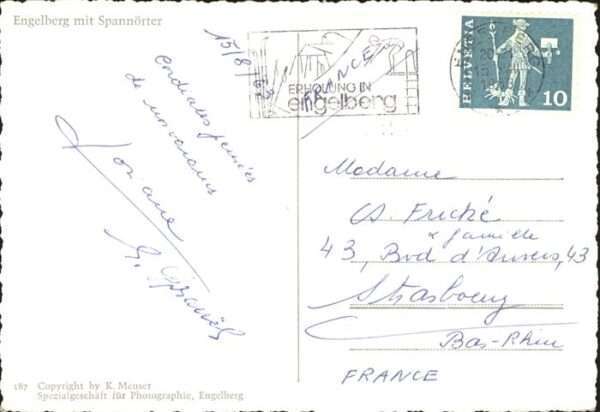 Engelberg mit Spannörter
15/8/
Cordiales pensées
de nos vacances
ERHOLUNG IN
engelberg
FRANCE
HELVETIA
10
Madame
A. Frické
& famille
43, Bvd d'Anvers, 43
Strasbourg
Bas-Rhin
FRANCE
187 Copyright by K. Meuser
Spezialgeschäft für Photographie, Engelberg